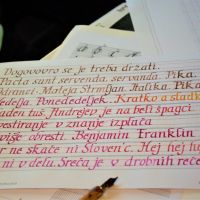 a b c č
Dogovorov se je treba držati.
Pacta sunt servanda, servanda. Pika.
Adranci. Mateja Strmljan. Italika. Pika
edelja. Ponedeljek. Kratko a sladko
aden tuš. Andrejev je na beli špagci
vestiranje v znanje izplača
višje obresti. Benjamin Franklin
r ne skače ni Slovenc. Hej hej
ni v delu. Sreča je v drobnih reče